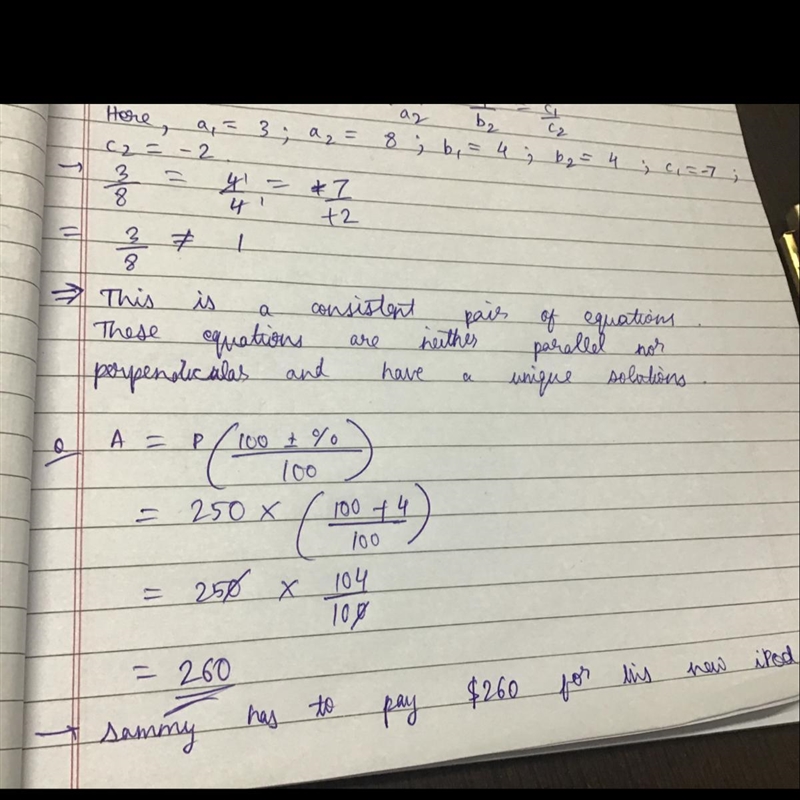 a2 b2 = c1/c2
Here, a1 = 3 ; a2 = 8 ; b1 = 4 ; b2 = 4 ; c1 = -7 ;
c2 = -2
→ 3/8 = 4/4 = 7/+2
= 3/8 ≠ 1
⇒ This is a consistent pair of equations.
These equations are neither parallel nor
perpendicular and have a unique solutions.
Q A = P(100 ± %/100)
= 250 × (100 + 4/100)
= 250 × 104/100
= 260
→ Sammy has to pay $260 for his new iPod